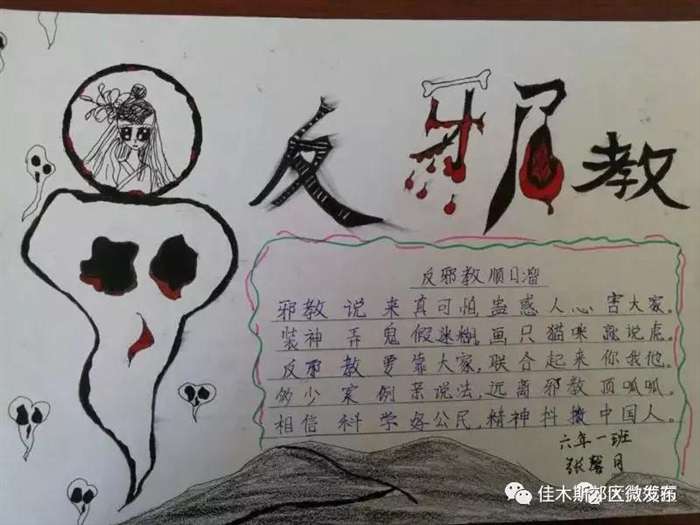 反邪教
反邪教顺口溜
邪教说来真可怕,蛊惑人心害大家。
装神弄鬼假迷糊,画只猫咪就说虎。
反邪教要靠大家,联合起来你我他。
多少案例亲说法,远离邪教顶呱呱。
相信科学好公民,精神抖擞中国人。
六年一班
张馨月
佳木斯郊区微发布